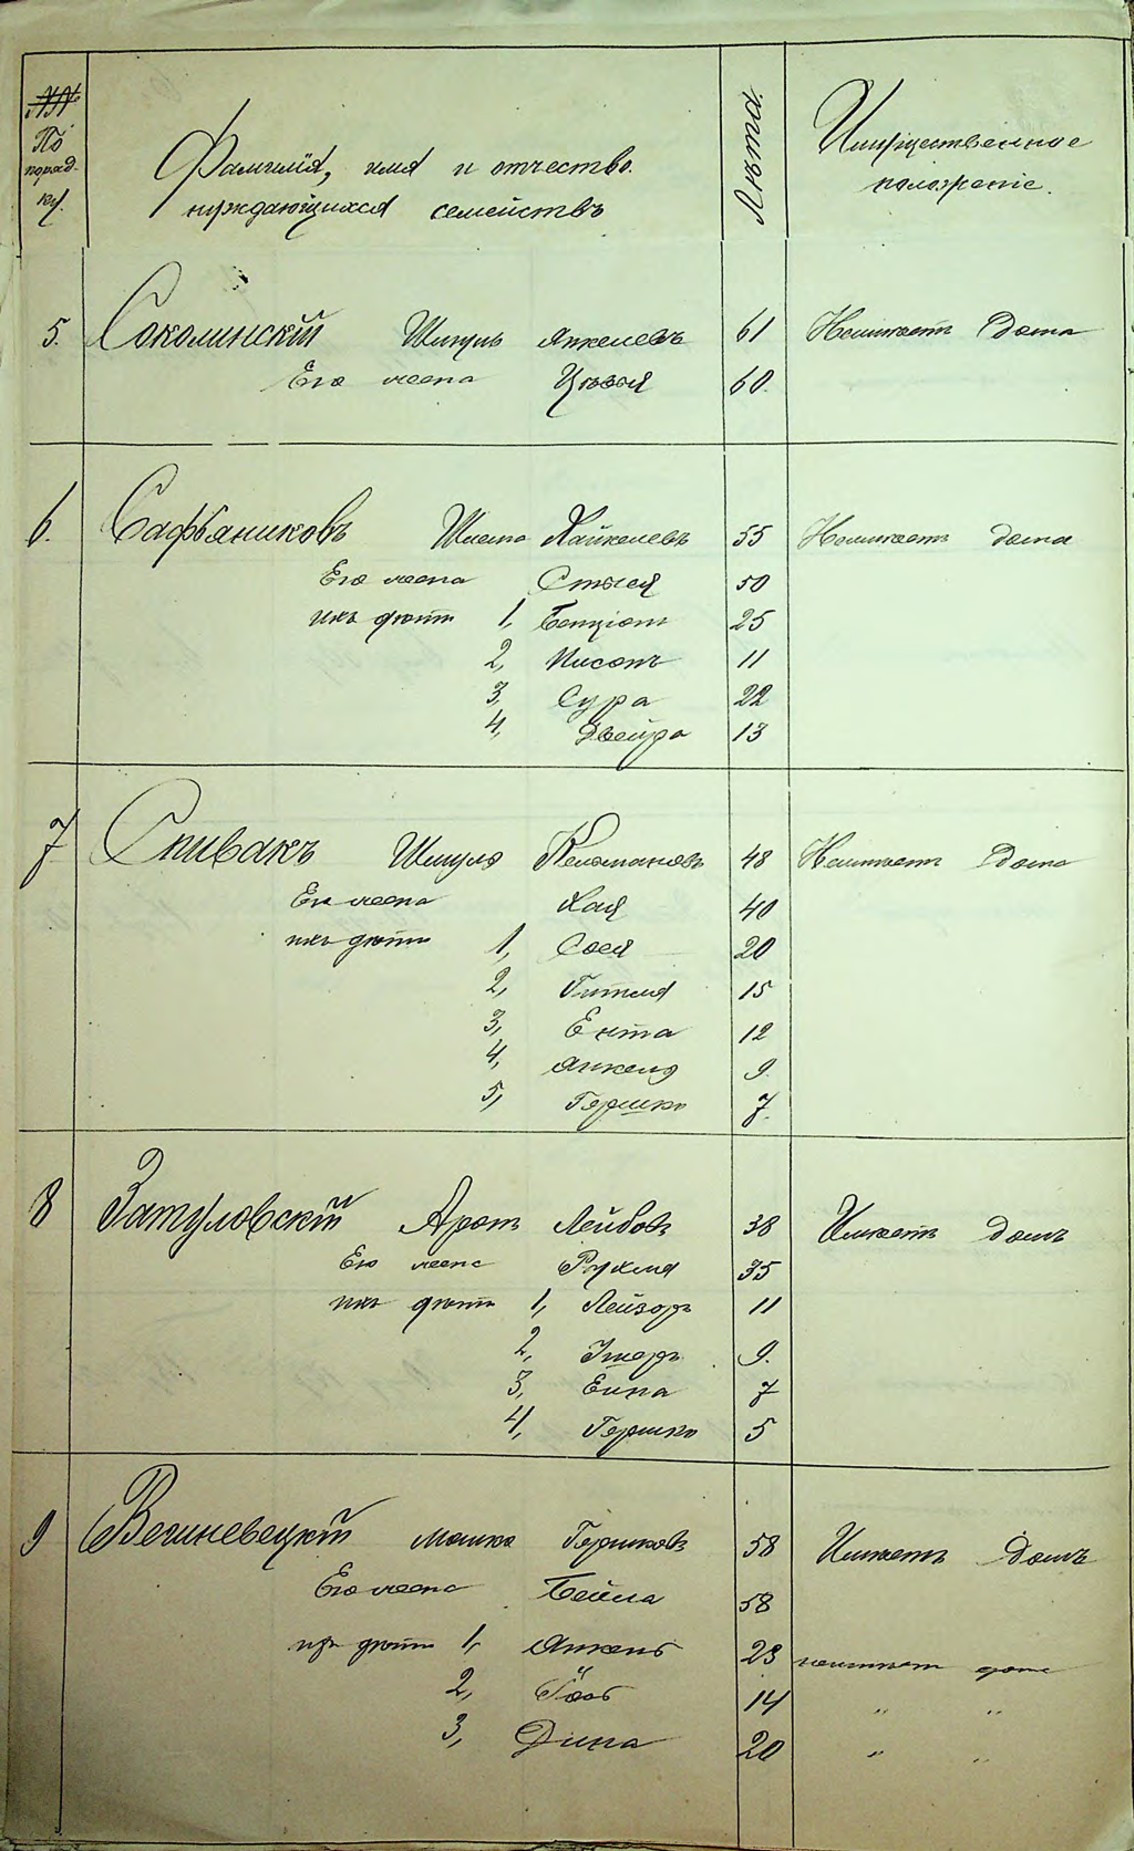 №№ По порядку.
Фамилія, имя и отчество нуждающихся семействъ
Лѣта.
Имущественное положеніе.
5. Соколинскій Шмуль Янкелевъ 61 Неимѣетъ Дома
Его жена Цывья 60.
6. Сафьяниковъ Шлема Хайкелевъ 55 Неимѣетъ дома
Его жена Стыся 50
ихъ дѣти 1, Бенціонъ 25
2, Нисонъ 11
3, Сура 22
4, Двейра 13
7 Спивакъ Шмуль Кельмановъ 48 Неимѣетъ Дома
Его жена Хая 40
ихъ дѣти 1, Сося 20
2, Гитля 15
3, Ента 12
4, Янкель 9.
5, Гершко 7.
8 Затуловскій Аронъ Лейбовъ 38 Имѣетъ домъ
Его жена Рухля 35
ихъ дѣти 1, Лейзоръ 11
2, 9.
3, 7
4, Гершко 5
9 Вешневецкій Мошко Гершковъ 58 Имѣетъ Домъ
Его жена Бейла 58
ихъ дѣти 1, Янкель 23 неимѣетъ дома
2, 14 " "
3, Дина 20 " "